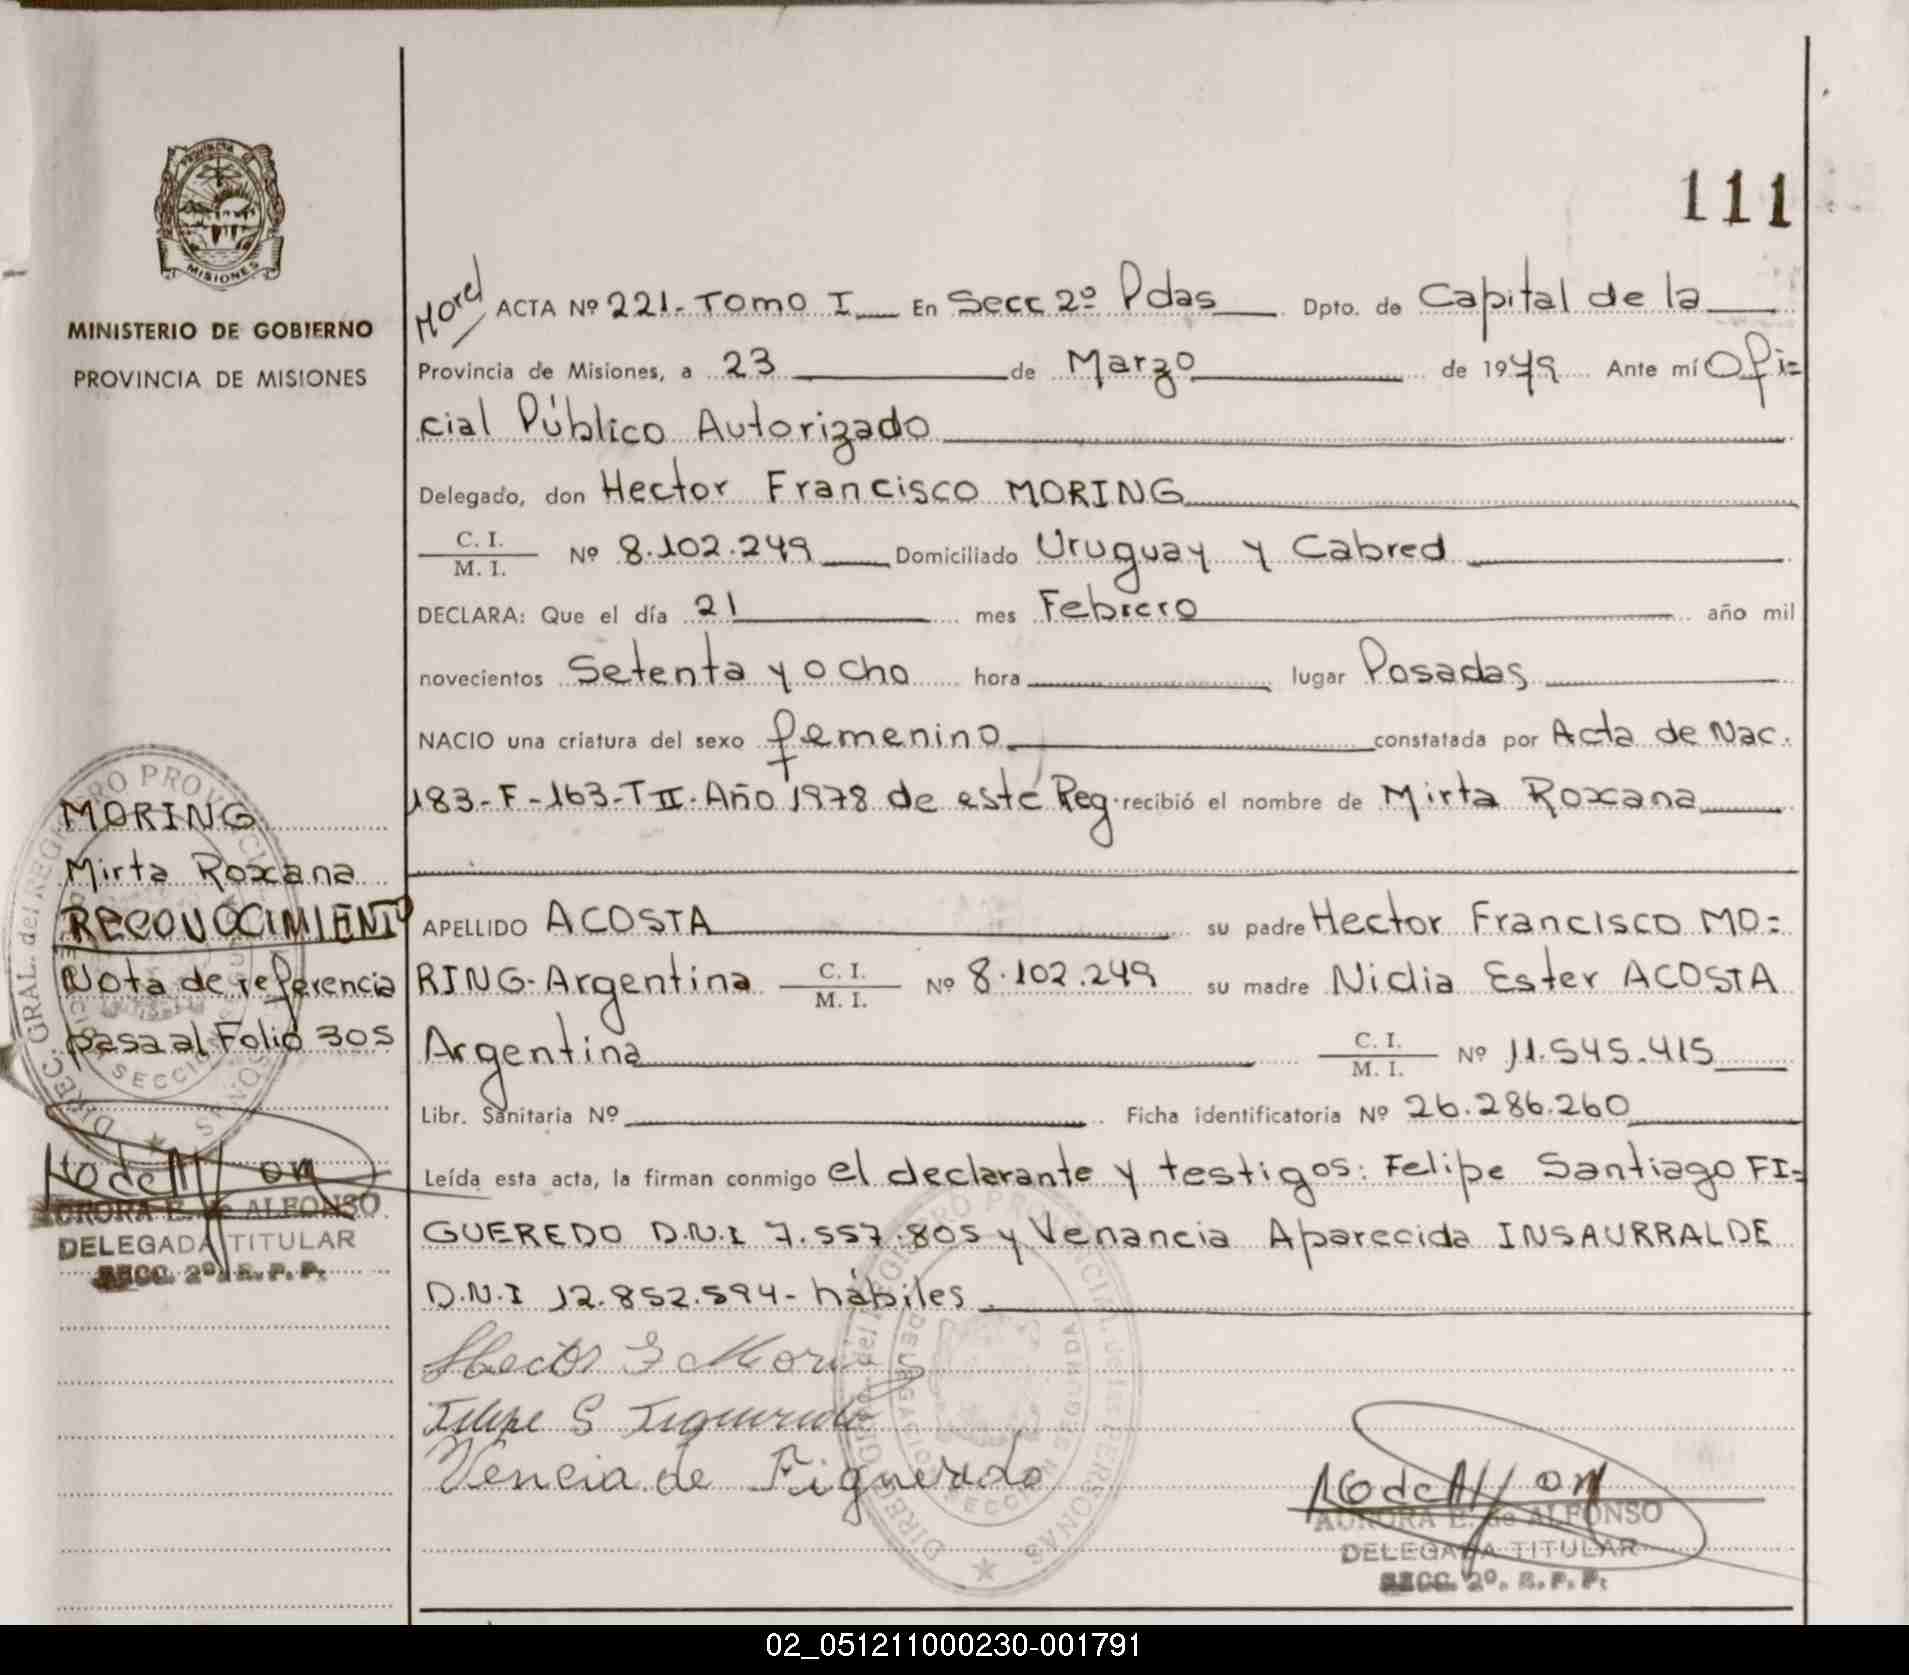 111
PROVINCIA DE
MISIONES
MINISTERIO DE GOBIERNO
PROVINCIA DE MISIONES
Morel
ACTA Nº 221-Tomo I En Secc 2º Pdas Dpto. de Capital de la
Provincia de Misiones, a 23 de Marzo de 1979 Ante mí Ofi=
cial Público Autorizado
Delegado, don Hector Francisco MORING
C. I.
M. I. Nº 8.102.249 Domiciliado Uruguay y Cabred
DECLARA: Que el día 21 mes Febrero año mil
novecientos Setenta y ocho hora lugar Posadas
NACIO una criatura del sexo femenino constatada por Acta de Nac.
183-F-163-T II. Año 1978 de este Reg. recibió el nombre de Mirta Roxana
APELLIDO ACOSTA su padre Hector Francisco MO=
RING-Argentina C. I.
M. I. Nº 8.102.249 su madre Nidia Ester ACOSTA
Argentina C. I.
M. I. Nº 11.545.415
Libr. Sanitaria Nº Ficha identificatoria Nº 26.286.260
Leída esta acta, la firman conmigo el declarante y testigos: Felipe Santiago FI=
GUEREDO D.N.I 7.557.805 y Venancia Aparecida INSAURRALDE
D.N.I 12.852.594- hábiles
Hector F Moring
Felipe S Figueredo
Vencia de Figueredo
AURORA E. de ALFONSO
DELEGADA TITULAR
SECC. 2º. R. P. P.
DIREC. GRAL. del REGISTRO PROVINCIAL de las PERSONAS
DELEGACION SECCION SEGUNDA
MORING
Mirta Roxana
RECONOCIMIENTO
Nota de referencia
pasa al Folio 305
AURORA E. de ALFONSO
DELEGADA TITULAR
SECC. 2º. R. P. P.
02_051211000230-001791